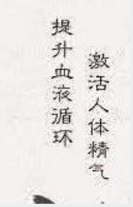 激活人体精气
提升血液循环